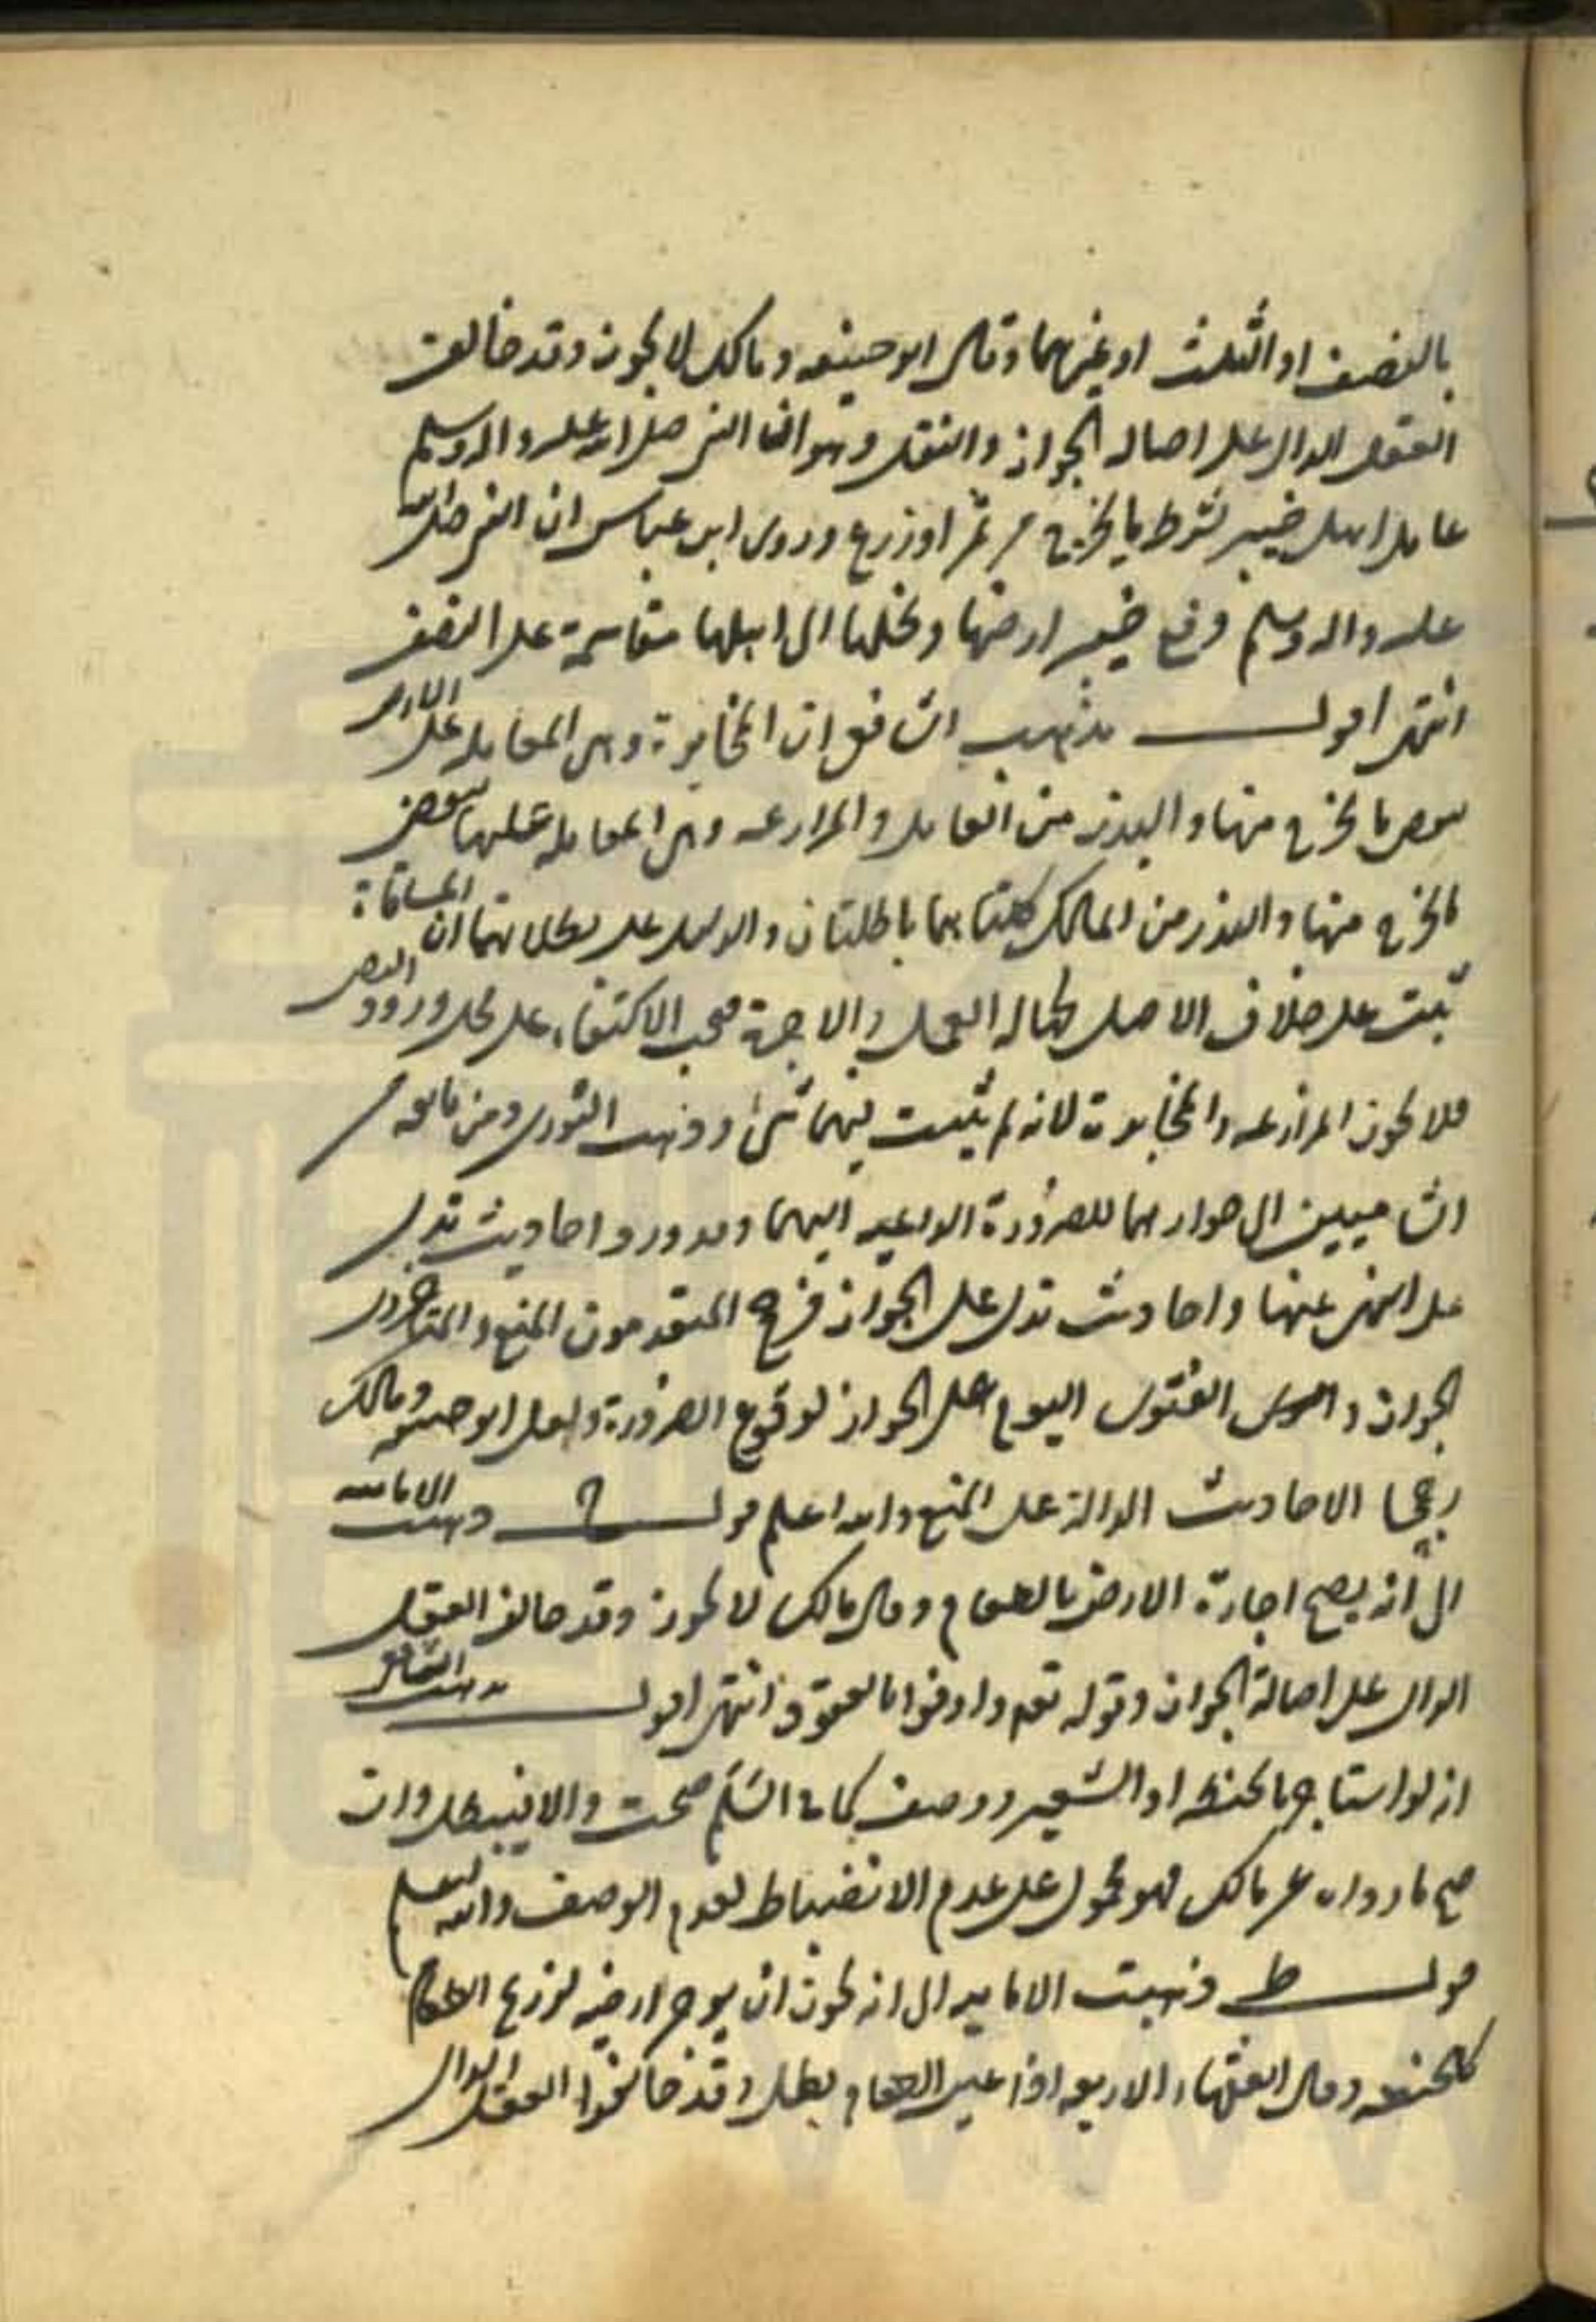 بالنصف او الثلث او غيرهما وقال ابو حنيفه ومالك لا يجوز وقد خالف
العقل الدال على اصاله الجواز والنقل وهو ان النبي صلى الله عليه واله وسلم
عامل اهل خيبر بشرط ما يخرج من ثمر او زرع وروى ابن عباس ان النبي صلى الله
عليه واله وسلم دفع خيبر ارضها ونخلها الى اهلها مقاسمة على النصف
انتهى اقول مذهب الشافعي ان المخابرة وهى المعامله على الارض
ببعض ما يخرج منها والبذر من العامل والمزارعه وهى المعامله عليها ببعض
ما يخرج منها والبذر من المالك كلتاهما باطلتان والدليل على بطلانهما ان المساقاة
ثبتت على خلاف الاصل لجهاله العمل والاجرة فيجب الاكتفاء على محل ورود النص
فلا يجوز المزارعه والمخابرة لانه لم يثبت فيهما شئ وذهب النووى ومن تابعه من
الشافعيين الى جوازهما للضرورة الداعيه اليهما وقد ورد احاديث تدل
على النهى عنها واحاديث تدل على الجواز فرجح المتقدمون المنع والمتاخرون
الجواز والفتوى اليوم على الجواز لوقوع الضرورة ولعل ابو حنيفه ومالك
رجحا الاحاديث الدالة على المنع والله اعلم قوله ح وذهبت الاماميه
الى انه يصح اجارة الارض بالطعام وقال مالك لا يجوز وقد خالف العقل
الدال على اصالة الجواز وقوله تعم واوفوا بالعقود انتهى اقول مذهب الشافعي
انه لو استاجر بالحنطه او الشعير ووصف كما في السلم صحت والا فيبطل وان
صح ما رواه عن مالك فهو محمول على عدم الانضباط لعدم الوصف والله اعلم
قوله ط وذهبت الاماميه الى انه يجوز ان يوجر ارضه لزرع الطعام
كالحنطه وقال الفقهاء الاربعه اذا عين الطعام بطل وقد خالفوا العقل الدال